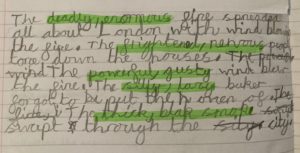 The deadly, enormous fire spreaded
all about London with wind blew
the fire. The frightened, nervous peopl
tore down the houses. The
wind The powerful, gusty wind blew
the fire. The silly, lazy baker
forgot to be put the oven of. The
The thick, blak smoke
swept through the city